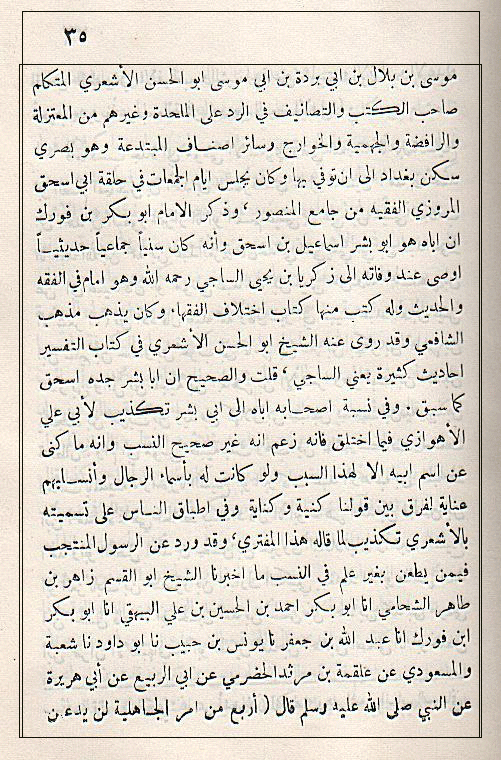 ٣٥
موسى بن بلال بن ابي بردة بن ابي موسى ابو الحسن الأشعري المتكلم
صاحب الكتب والتصانيف في الرد على الملحدة وغيرهم من المعتزلة
والرافضة والجهمية والخوارج وسائر اصناف المبتدعة وهو بصري
سكن بغداد الى ان توفي بها وكان يجلس ايام الجمعات في حلقة ابي اسحق
المروزي الفقيه من جامع المنصور ، وذكر الامام ابو بكر بن فورك
ان اباه هو ابو بشر اسماعيل بن اسحق وأنه كان سنياً جماعياً حديثياً
اوصى عند وفاته الى زكريا بن يحيى الساجي رحمه الله وهو امام في الفقه
والحديث وله كتب منها كتاب اختلاف الفقهاء وكان يذهب مذهب
الشافعي وقد روى عنه الشيخ ابو الحسن الأشعري في كتاب التفسير
احاديث كثيرة يعني الساجي ، قلت والصحيح ان ابا بشر جده اسحق
كما سبق . وفي نسبة اصحابه اباه الى ابي بشر تكذيب لأبي علي
الأهوازي فيما اختلق فانه زعم انه غير صحيح النسب وانه ما كنى
عن اسم ابيه الا لهذا السبب ولو كانت له بأسماء الرجال وأنسابهم
عناية لفرق بين قولنا كنية وكناية وفي اطباق الناس على تسميته
بالأشعري تكذيب لما قاله هذا المفتري ، وقد ورد عن الرسول المنتجب
فيمن يطعن بغير علم في النسب ما اخبرنا الشيخ ابو القسم زاهر بن
طاهر الشحامي انا ابو بكر احمد بن الحسين بن علي البيهقي انا ابو بكر
ابن فورك انا عبد الله بن جعفر نا يونس بن حبيب نا ابو داود نا شعبة
والمسعودي عن علقمة بن مرثد الحضرمي عن ابي الربيع عن أبي هريرة
عن النبي صلى الله عليه وسلم قال ( أربع من امر الجاهلية لن يدعهن